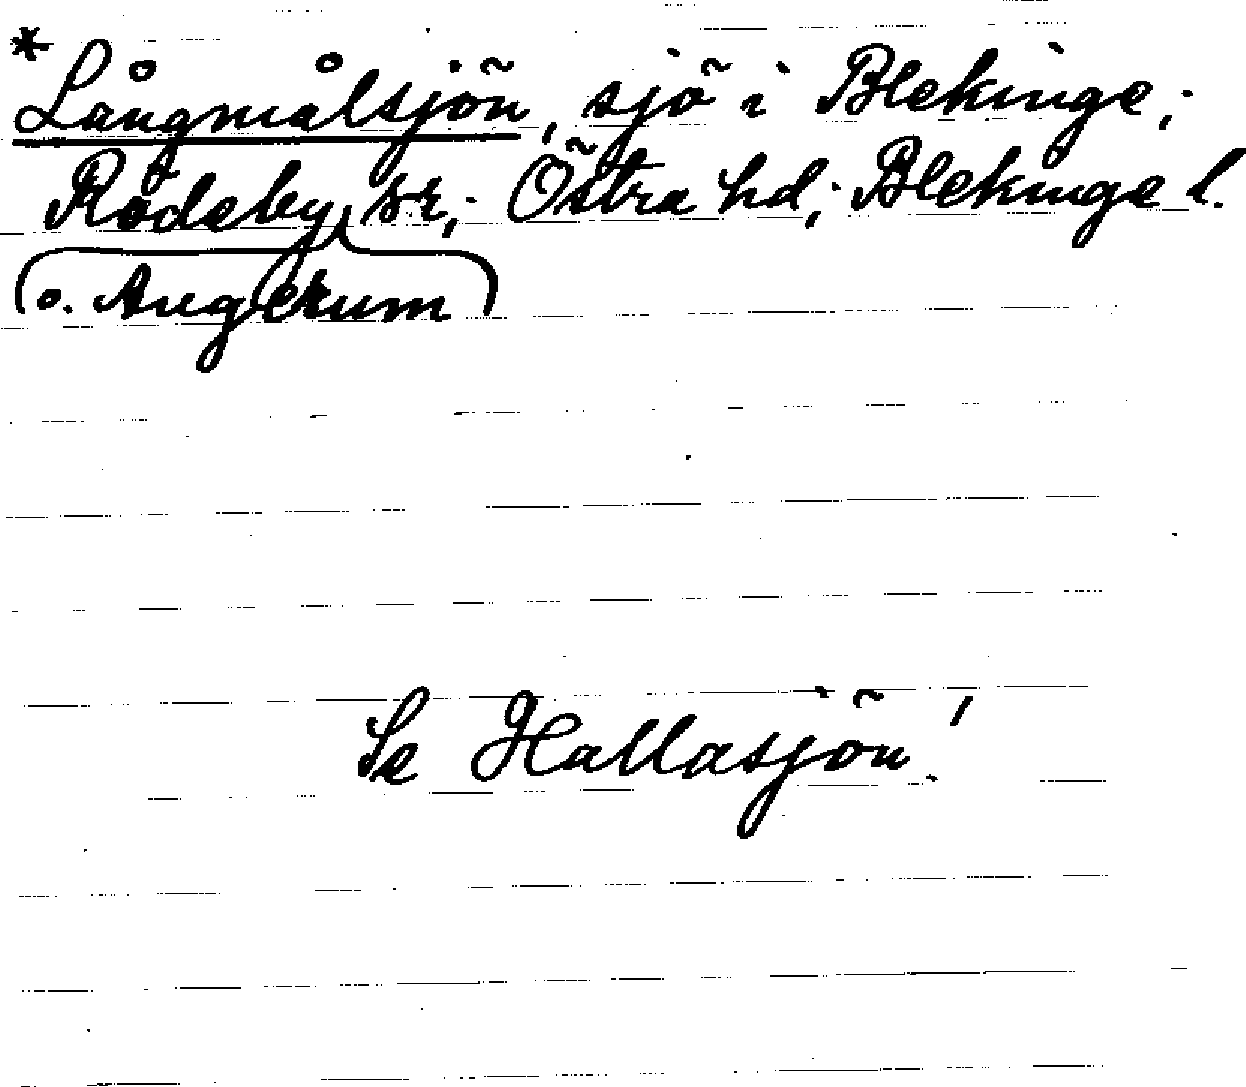 *Långmålsjön, sjö i Blekinge;
Rödeby sn; Östra hd; Blekinge l.
(o. Augerum)
Se Hallasjön!